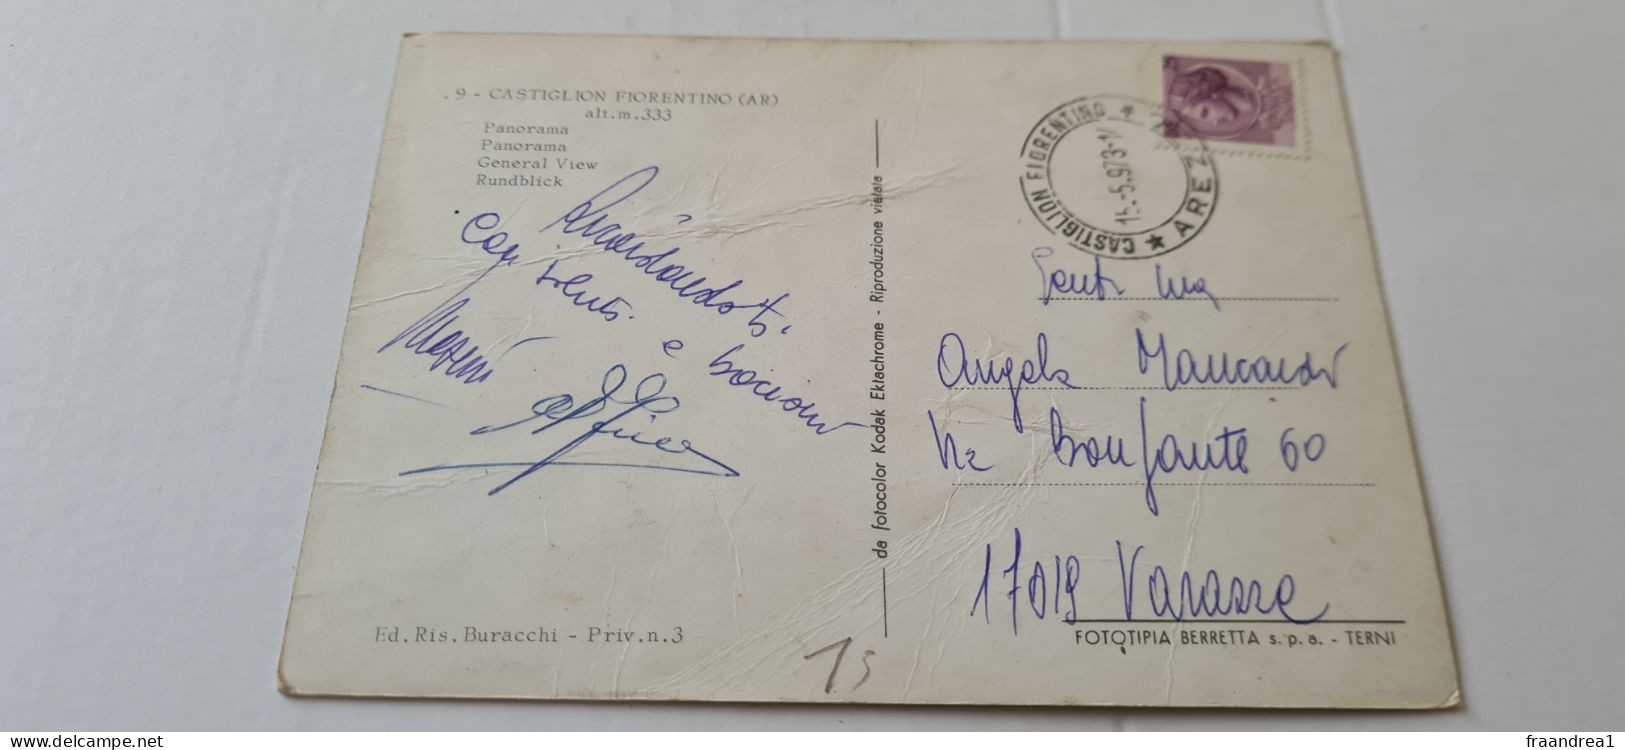 . 9 - CASTIGLION FIORENTINO (AR)
alt. m. 333
Panorama
Panorama
General View
Rundblick
Ricordandoti
e bacioni
Ed. Ris. Buracchi - Priv. n. 3
da fotocolor Kodak Ektachrome - Riproduzione vietata
CASTIGLION FIORENTINO ★ AREZ ★
15.-5.973-1
Angela
Via Bonfante 60
17019 Varazze
FOTOTIPIA BERRETTA s.p.a. - TERNI
15
www.delcampe.net
fraandrea1